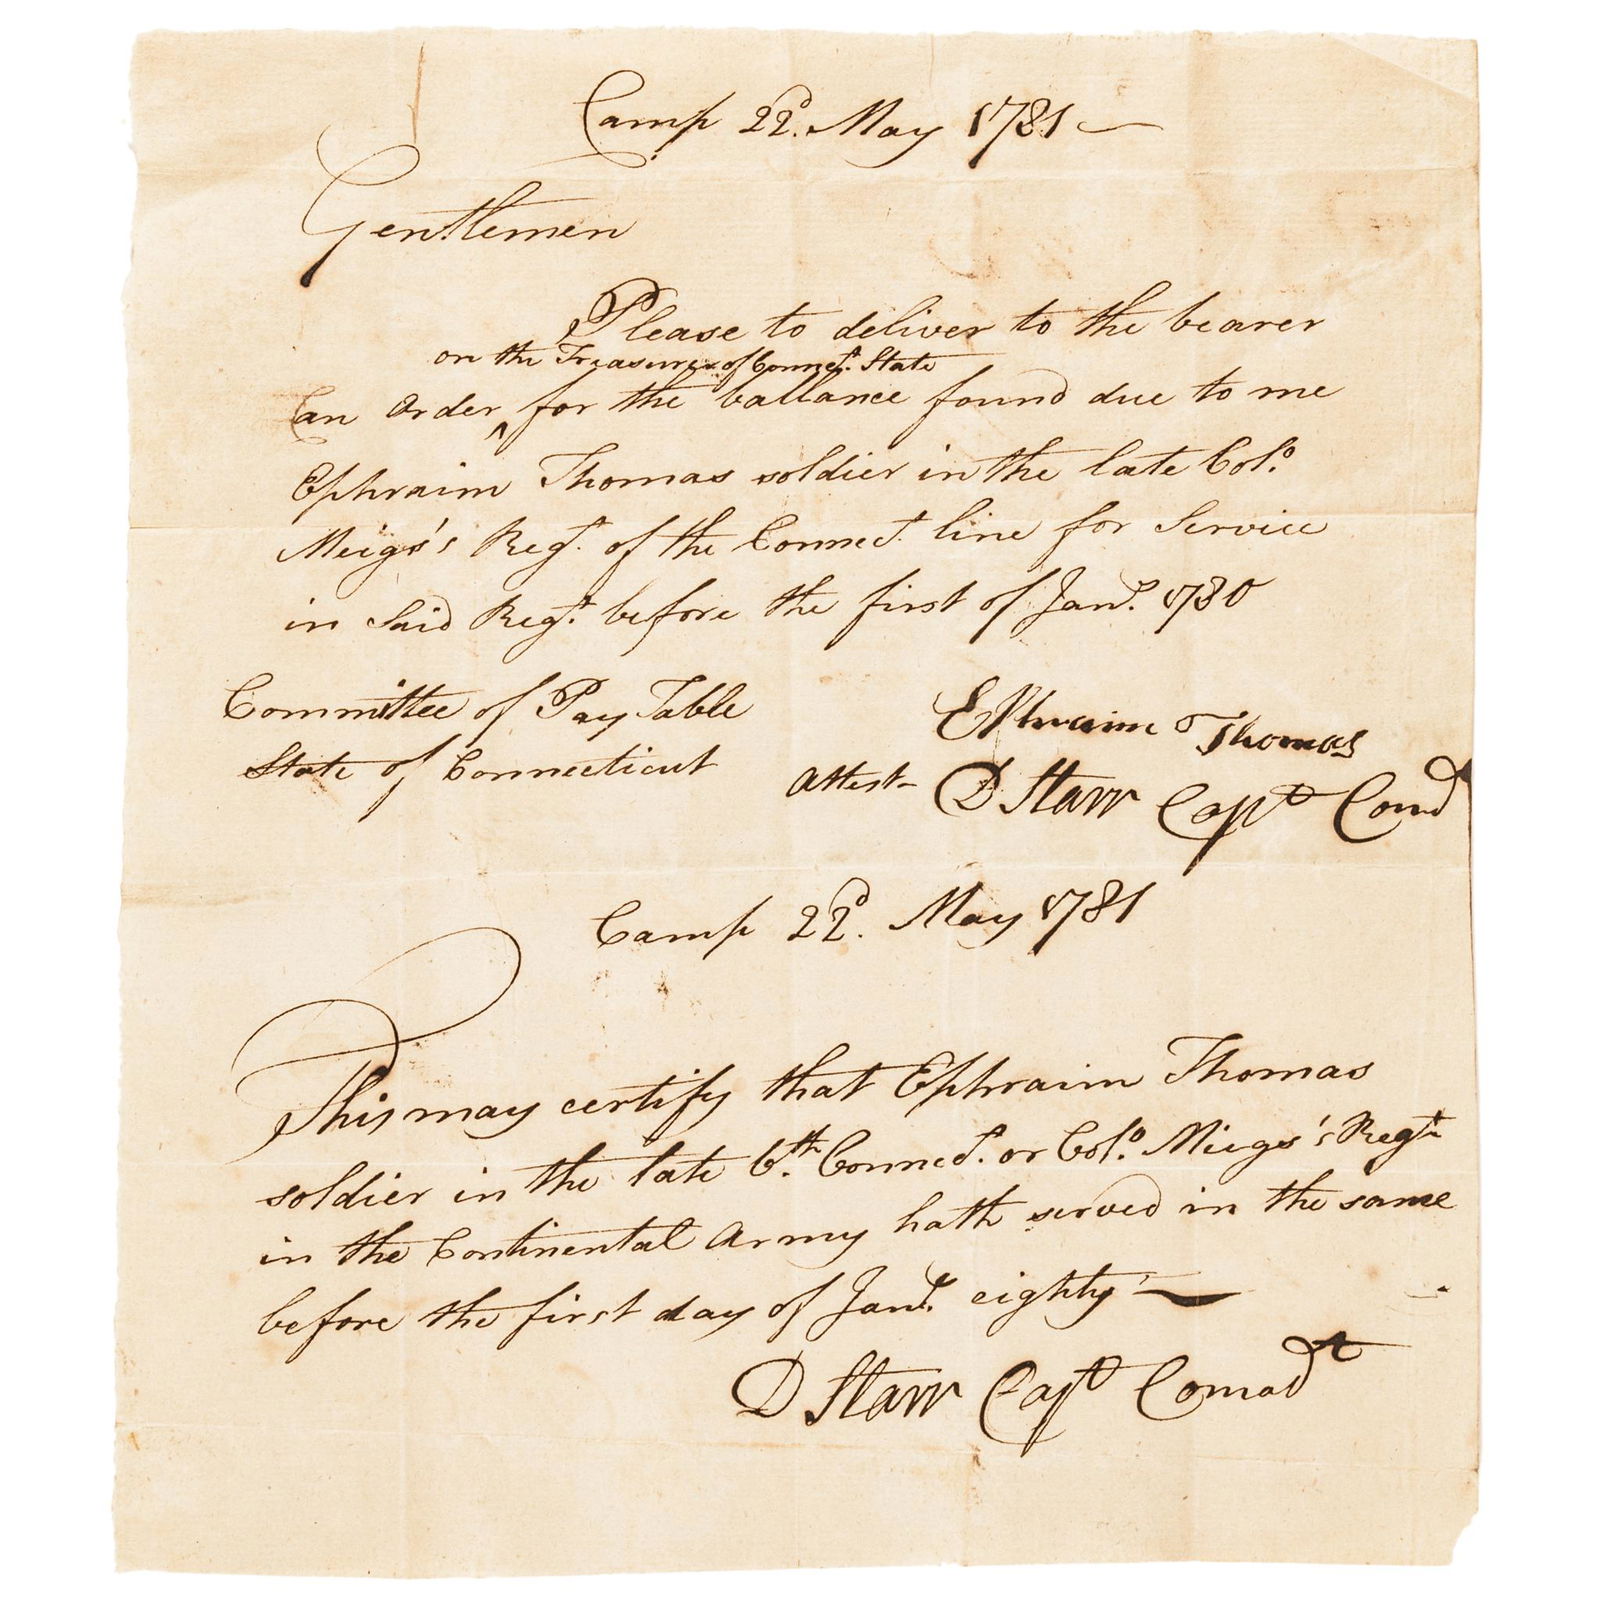 Camp 22d. May 1781
Gentlemen
Please to deliver to the bearer
on the Treasurer of Connect. State
an Order ^ for the ballance found due to me
Ephraim Thomas soldier in the late Colo.
Meigs's Regt. of the Connect. line for Service
in Said Regt. before the first of Jany. 1780
Committee of Pay Table
State of Connecticut
Ephraim Thomas
Attest D Starr Capt Comd
Camp 22d. May 1781
This may certify that Ephraim Thomas
soldier in the late 6th. Connect. or Colo. Miegs's Regt
in the Continental Army hath served in the same
before the first day of Jany. eighty
D Starr Capt Comadt